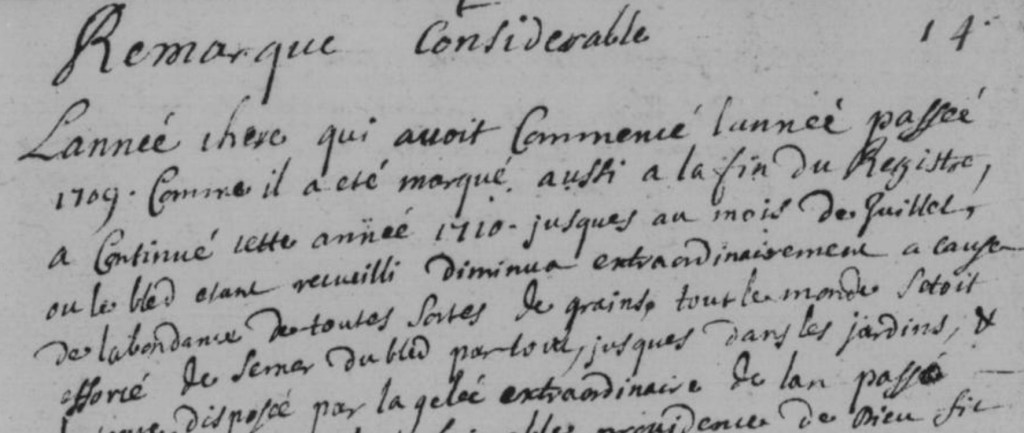 Remarque Considerable 14
Lanneé chere qui avoit Commencé lanneé passeé
1709. Comme il a eté marqué aussi a la fin du Registre,
a Continué cette anneé 1710. jusques au mois de Juillet,
ou le bled etant recueilli diminua extraordinairement a cause
de labondance de toutes sortes de grains, tout le monde setoit
efforcé de semer du bled partout, jusques dans les jardins, &
disposeé par la geleé extraordinaire de lan passé
providence de Dieu fit